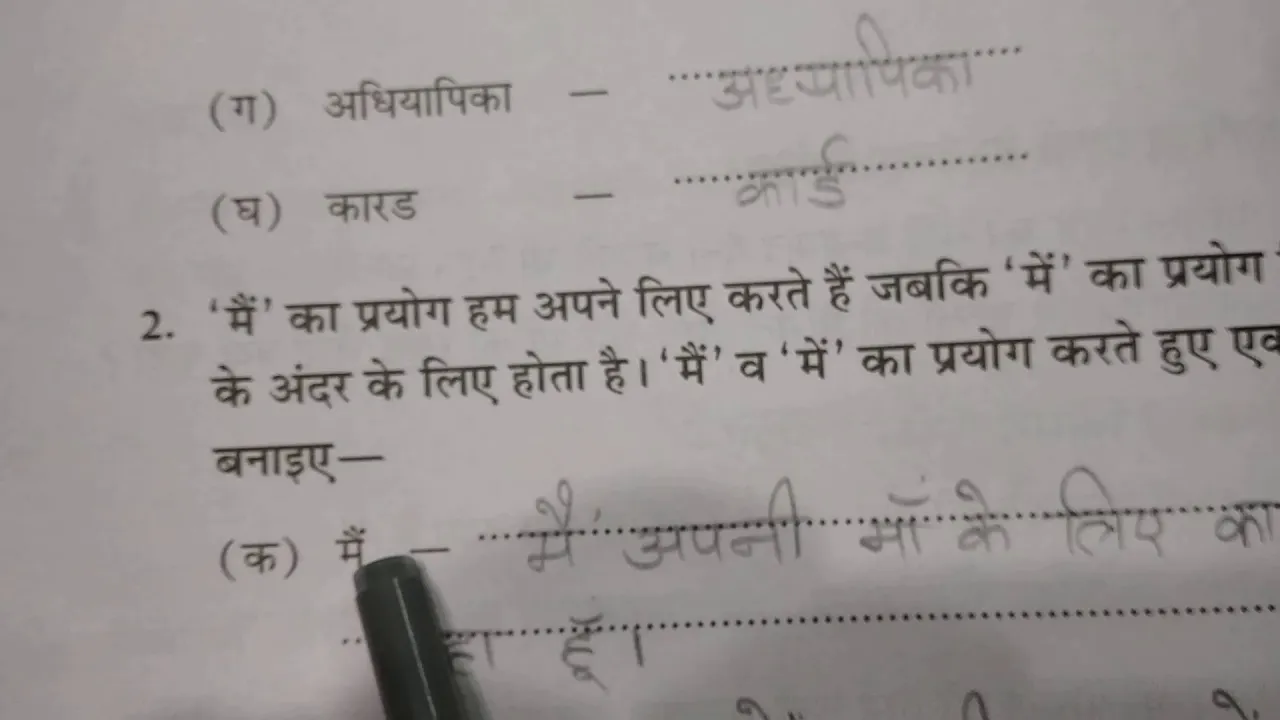 (ग) अधियापिका – अध्यापिका
(घ) कारड – कार्ड
2. ‘मैं’ का प्रयोग हम अपने लिए करते हैं जबकि ‘में’ का प्रयोग
के अंदर के लिए होता है। ‘मैं’ व ‘में’ का प्रयोग करते हुए एक
बनाइए—
(क) मैं – मैं अपनी माँ के लिए का
हा हूँ।